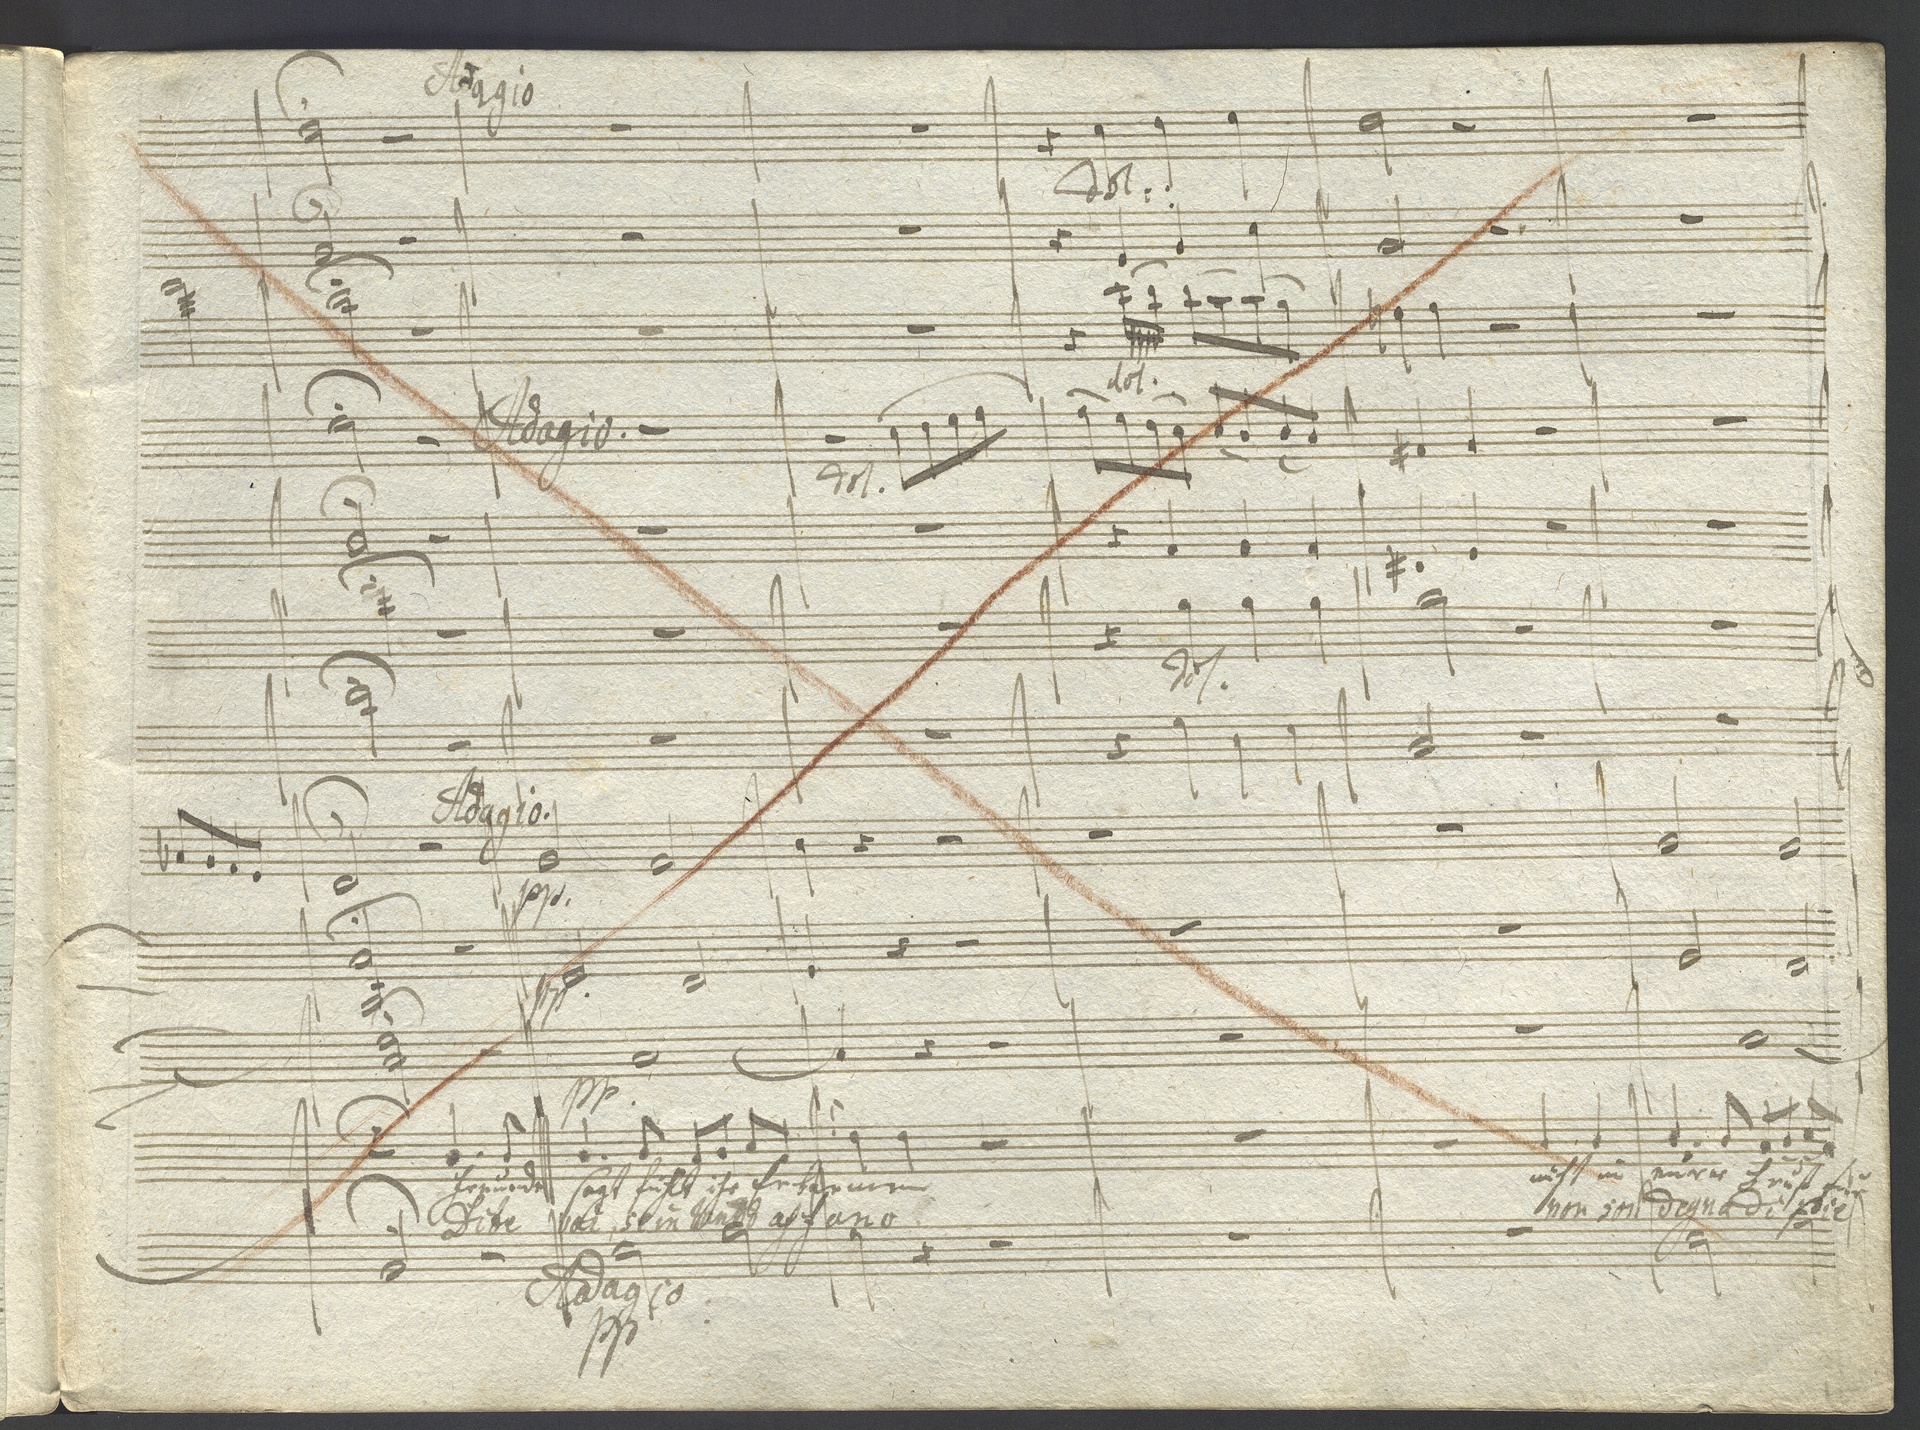 Adagio
dol.
dol.
Adagio.
dol.
dol.
Adagio.
pp.
pp.
pp.
Freunde sagt fühlt ihr Erbarmen
nicht in eurer Brust
Dite voi se in affano
non son degna di
Adagio
pp